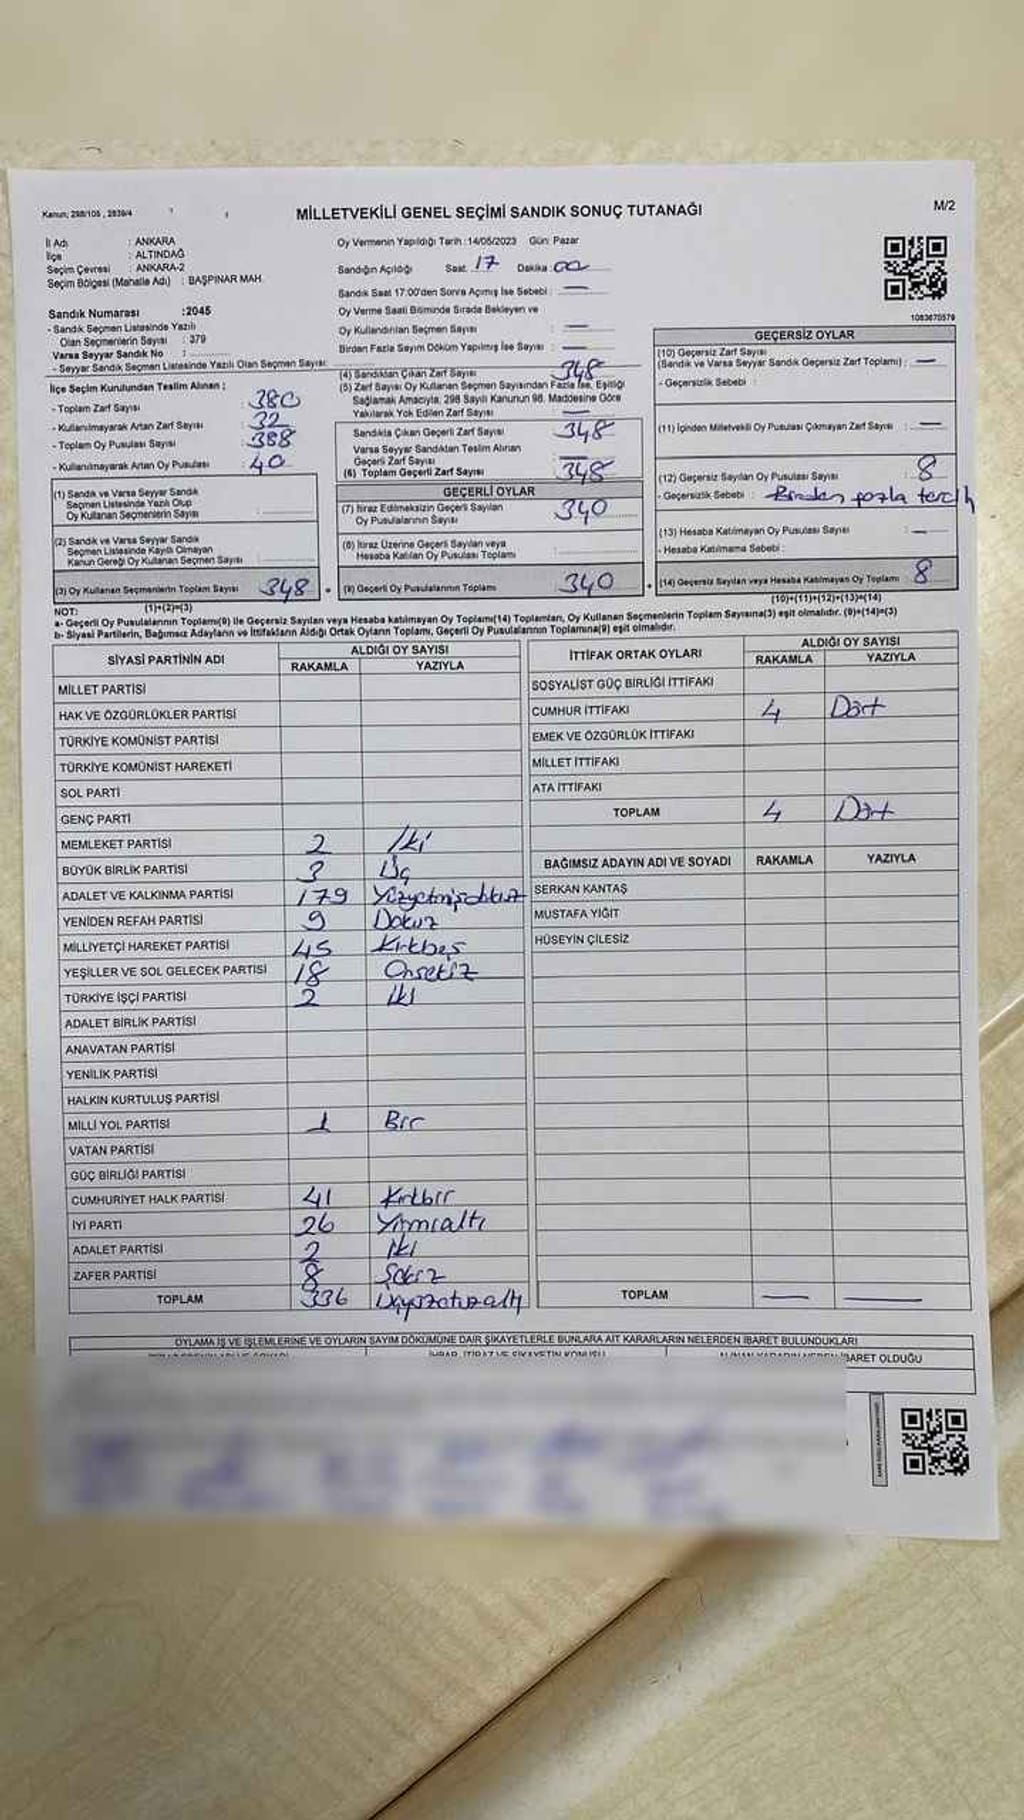 Kanun; 298/105 , 2839/4
MİLLETVEKİLİ GENEL SEÇİMİ SANDIK SONUÇ TUTANAĞI
M/2
İl Adı : ANKARA
İlçe : ALTINDAĞ
Seçim Çevresi : ANKARA-2
Seçim Bölgesi (Mahalle Adı) : BAŞPINAR MAH.
Sandık Numarası :2045
- Sandık Seçmen Listesinde Yazılı
Olan Seçmenlerin Sayısı : 379
Varsa Seyyar Sandık No :
- Seyyar Sandık Seçmen Listesinde Yazılı Olan Seçmen Sayısı:
İlçe Seçim Kurulundan Teslim Alınan ;
- Toplam Zarf Sayısı : 380
- Kullanılmayarak Artan Zarf Sayısı : 32
- Toplam Oy Pusulası Sayısı : 388
- Kullanılmayarak Artan Oy Pusulası : 40
(1) Sandık ve Varsa Seyyar Sandık
Seçmen Listesinde Yazılı Olup
Oy Kullanan Seçmenlerin Sayısı :
(2) Sandık ve Varsa Seyyar Sandık
Seçmen Listesinde Kayıtlı Olmayan
Kanun Gereği Oy Kullanan Seçmen Sayısı :
(3) Oy Kullanan Seçmenlerin Toplam Sayısı 348
(1)+(2)=(3)
Oy Vermenin Yapıldığı Tarih :14/05/2023 Gün: Pazar
Sandığın Açıldığı Saat: 17 Dakika: 00
Sandık Saat 17:00'den Sonra Açımış İse Sebebi : —
Oy Verme Saati Bitiminde Sırada Bekleyen ve
Oy Kullandırılan Seçmen Sayısı : —
Birden Fazla Sayım Döküm Yapılmış İse Sayısı : —
(4) Sandıktan Çıkan Zarf Sayısı : 348
(5) Zarf Sayısı Oy Kullanan Seçmen Sayısından Fazla İse, Eşitliği
Sağlamak Amacıyla, 298 Sayılı Kanunun 98. Maddesine Göre
Yakılarak Yok Edilen Zarf Sayısı : —
Sandıkta Çıkan Geçerli Zarf Sayısı : 348
Varsa Seyyar Sandıktan Teslim Alınan
Geçerli Zarf Sayısı : —
(6) Toplam Geçerli Zarf Sayısı : 348
GEÇERLİ OYLAR
(7) İtiraz Edilmeksizin Geçerli Sayılan
Oy Pusulalarının Sayısı : 340
(8) İtiraz Üzerine Geçerli Sayılan veya
Hesaba Katılan Oy Pusulası Toplamı :
(9) Geçerli Oy Pusulalarının Toplamı : 340
1083670579
GEÇERSİZ OYLAR
(10) Geçersiz Zarf Sayısı
(Sandık ve Varsa Seyyar Sandık Geçersiz Zarf Toplamı) : —
- Geçersizlik Sebebi :
(11) İçinden Milletvekili Oy Pusulası Çıkmayan Zarf Sayısı : —
(12) Geçersiz Sayılan Oy Pusulası Sayısı : 8
- Geçersizlik Sebebi : Birden fazla tercih
(13) Hesaba Katılmayan Oy Pusulası Sayısı : —
- Hesaba Katılmama Sebebi :
(14) Geçersiz Sayılan veya Hesaba Katılmayan Oy Toplamı : 8
(10)+(11)+(12)+(13)=(14)
NOT:
a- Geçerli Oy Pusulalarının Toplamı(9) ile Geçersiz Sayılan veya Hesaba katılmayan Oy Toplamı(14) Toplamları, Oy Kullanan Seçmenlerin Toplam Sayısına(3) eşit olmalıdır. (9)+(14)=(3)
b- Siyasi Partilerin, Bağımsız Adayların ve İttifakların Aldığı Ortak Oyların Toplamı, Geçerli Oy Pusulalarının Toplamına(9) eşit olmalıdır.
SİYASİ PARTİNİN ADI ALDIĞI OY SAYISI
RAKAMLA YAZIYLA
MİLLET PARTİSİ
HAK VE ÖZGÜRLÜKLER PARTİSİ
TÜRKİYE KOMÜNİST PARTİSİ
TÜRKİYE KOMÜNİST HAREKETİ
SOL PARTİ
GENÇ PARTİ
MEMLEKET PARTİSİ 2 İki
BÜYÜK BİRLİK PARTİSİ 3 Üç
ADALET VE KALKINMA PARTİSİ 179 Yüzyetmişdokuz
YENİDEN REFAH PARTİSİ 9 Dokuz
MİLLİYETÇİ HAREKET PARTİSİ 45 Kırkbeş
YEŞİLLER VE SOL GELECEK PARTİSİ 18 Onsekiz
TÜRKİYE İŞÇİ PARTİSİ 2 İki
ADALET BİRLİK PARTİSİ
ANAVATAN PARTİSİ
YENİLİK PARTİSİ
HALKIN KURTULUŞ PARTİSİ
MİLLİ YOL PARTİSİ 1 Bir
VATAN PARTİSİ
GÜÇ BİRLİĞİ PARTİSİ
CUMHURİYET HALK PARTİSİ 41 Kırkbir
İYİ PARTİ 26 Yirmialtı
ADALET PARTİSİ 2 İki
ZAFER PARTİSİ 8 Sekiz
TOPLAM 336 Üçyüzotuzaltı
İTTİFAK ORTAK OYLARI ALDIĞI OY SAYISI
RAKAMLA YAZIYLA
SOSYALİST GÜÇ BİRLİĞİ İTTİFAKI
CUMHUR İTTİFAKI 4 Dört
EMEK VE ÖZGÜRLÜK İTTİFAKI
MİLLET İTTİFAKI
ATA İTTİFAKI
TOPLAM 4 Dört
BAĞIMSIZ ADAYIN ADI VE SOYADI RAKAMLA YAZIYLA
SERKAN KANTAŞ
MUSTAFA YİĞİT
HÜSEYİN ÇİLESİZ
TOPLAM — —
OYLAMA İŞ VE İŞLEMLERİNE VE OYLARIN SAYIM DÖKÜMÜNE DAİR ŞİKAYETLERLE BUNLARA AİT KARARLARIN NELERDEN İBARET BULUNDUKLARI
İHBAR, İTİRAZ VE ŞİKAYETİN KONUSU
ALINAN KARARIN NEDEN İBARET OLDUĞU